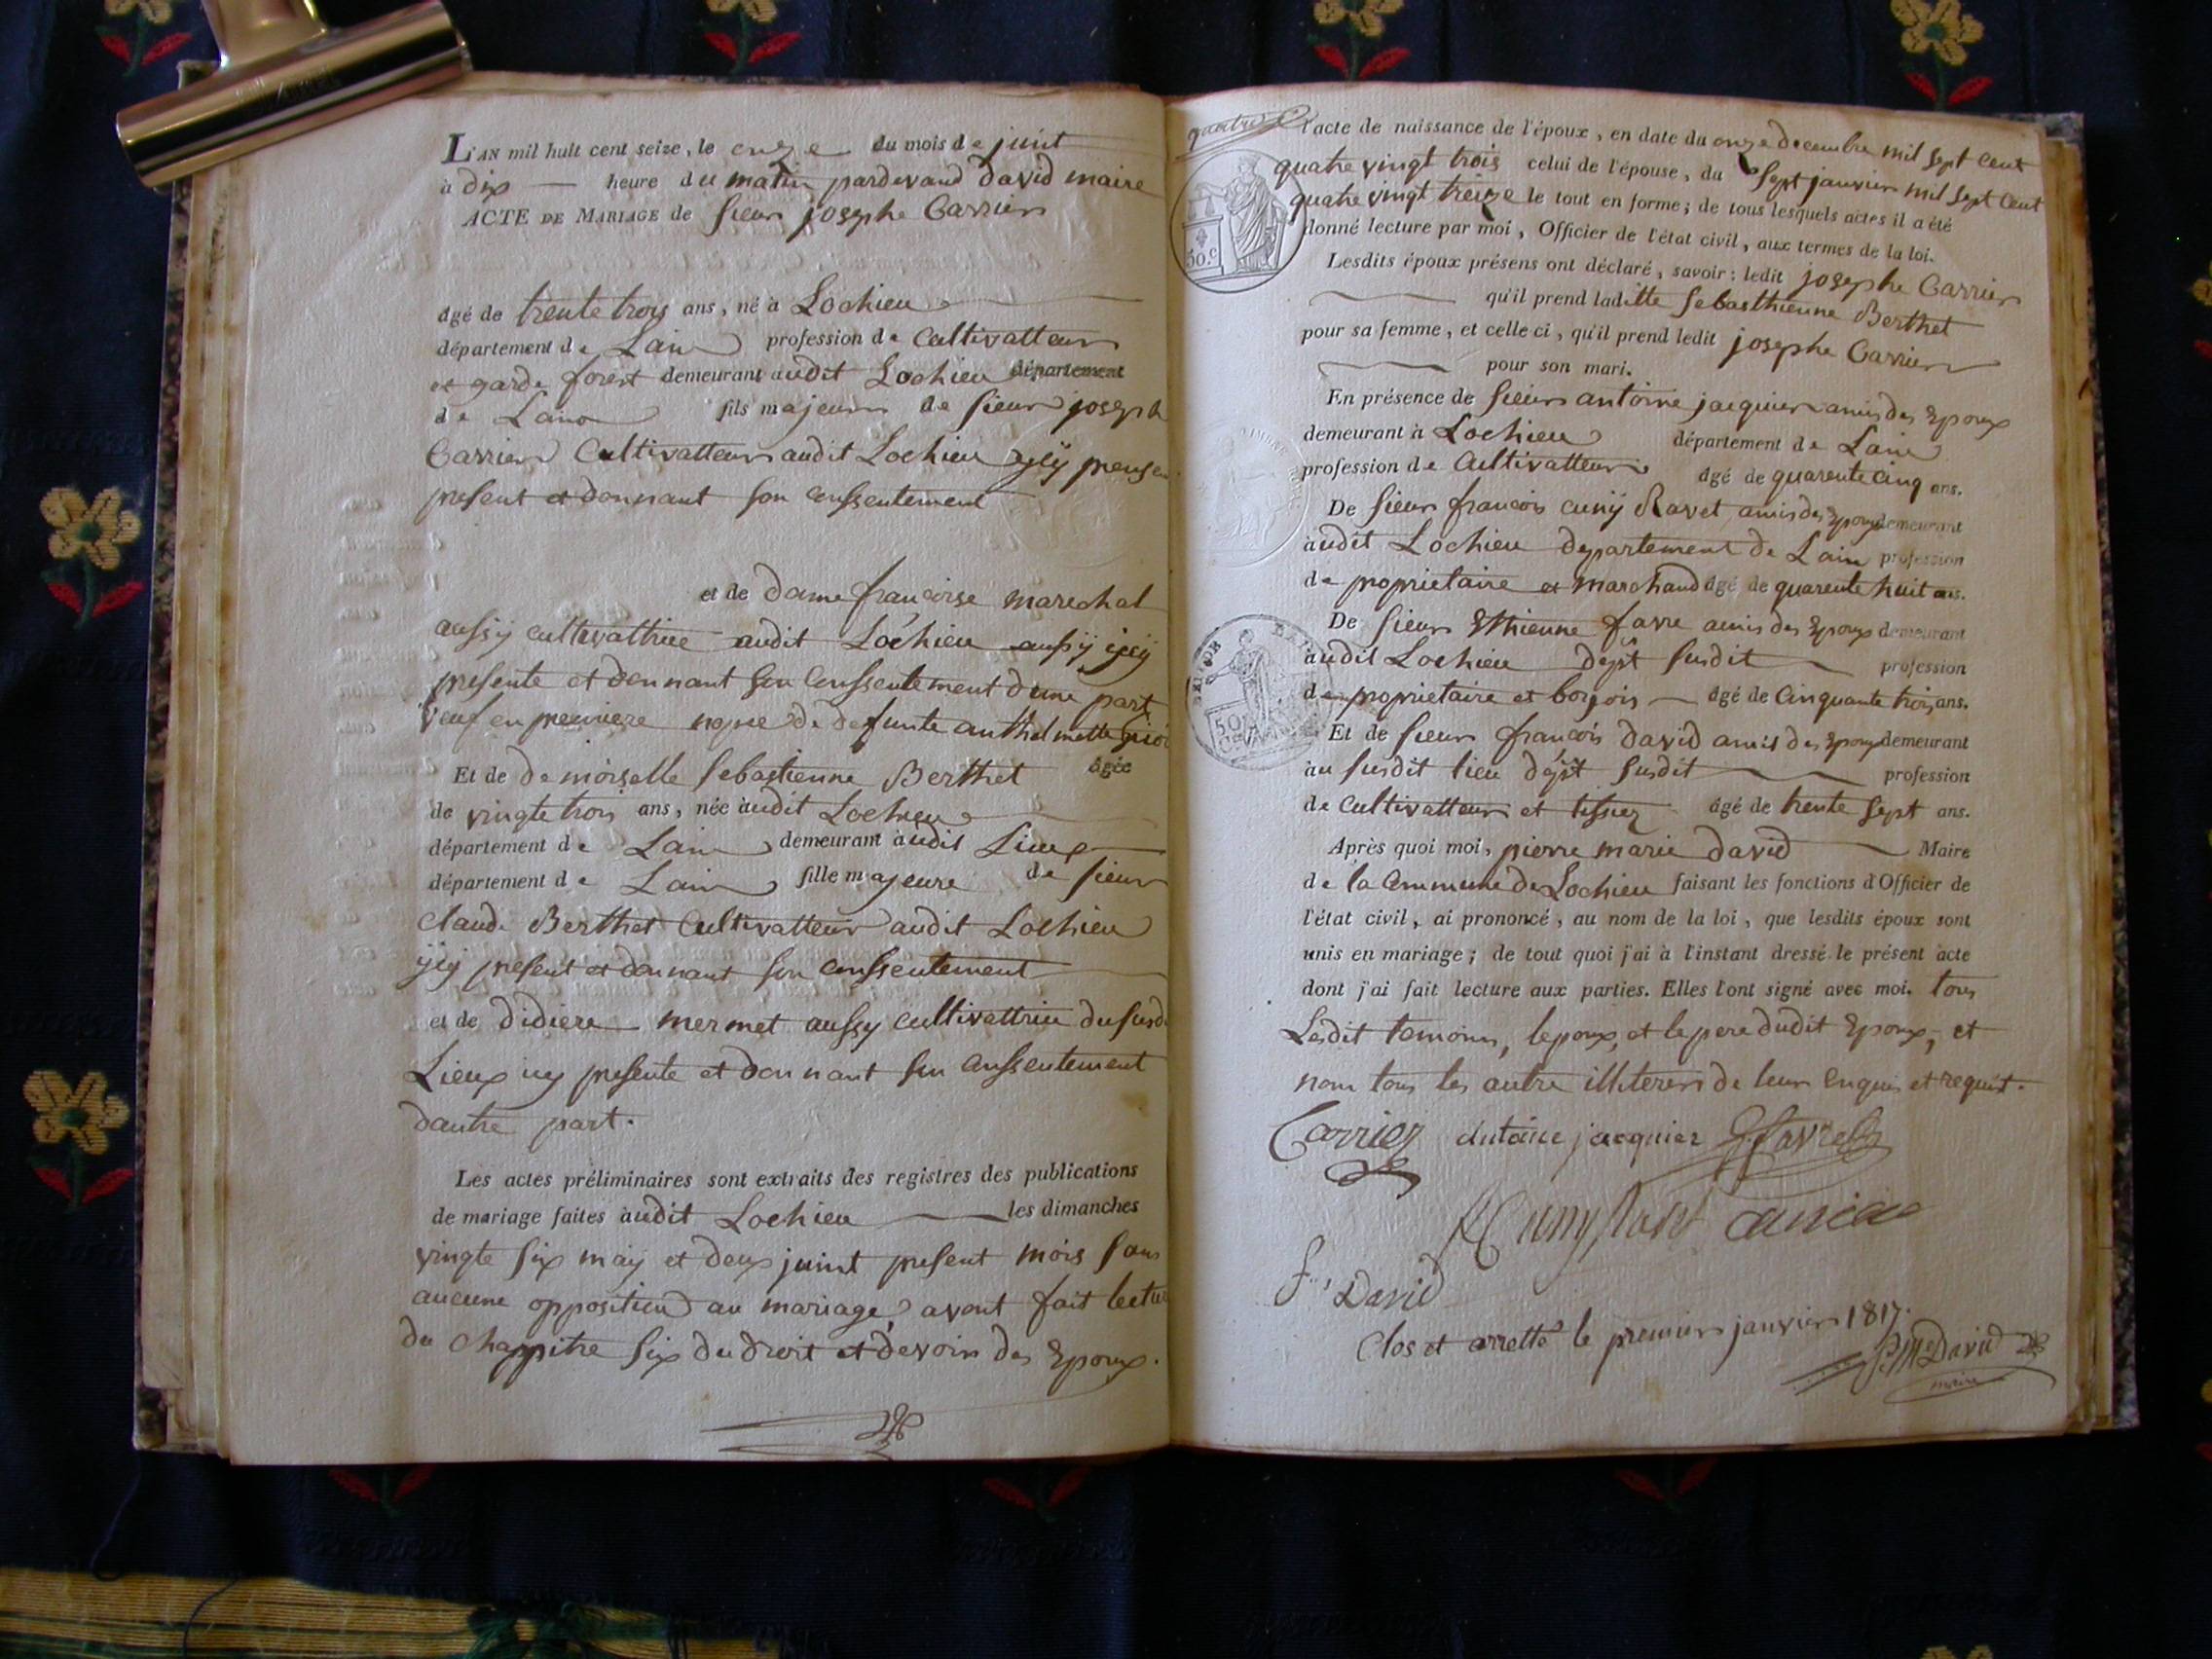 L'AN mil huit cent seize, le onze du mois de juint
à dix heure du matin pardevand david maire
ACTE DE MARIAGE de sieur josephe Carrier
âgé de trente trois ans, né à Lochieu
département de Lain profession de Cultivatteur
et garde forest demeurant audit Lochieu département
de Lain fils majeur de sieur joseph
Carrier Cultivatteur audit Lochieu
present et donnant son conssentement
et de dame francoise marechal
aussy cultivattrice audit Lochieu aussy
presente et donnant son conssentement dune part
veuf en premiere de defunte anthelmette
Et de demoiselle sebastienne Berthet âgée
de vingte trois ans, née audit Lochieu
département de Lain demeurant audit Lieux
département de Lain fille majeure de sieur
claude Berthet Cultivatteur audit Lochieu
present et donnant son conssentement
et de didiere mermet aussy cultivattrice du
Lieux icy presente et donnant son conssentement
dautre part.
Les actes préliminaires sont extraits des registres des publications
de mariage faites audit Lochieu les dimanches
vingte six maij et deux juint present mois sans
aucune opposition au mariage, avont fait
du chappitre six du droit et devoir des Epoux.
l'acte de naissance de l'époux, en date du onze decembre mil sept cent
quatre vingt trois celui de l'épouse, du sept janvier mil sept cent
quatre vingt treize le tout en forme; de tous lesquels actes il a été
donné lecture par moi, Officier de l'état civil, aux termes de la loi.
50.c
Lesdits époux présens ont déclaré, savoir: ledit josephe Carrier
qu'il prend laditte sebasthienne Berthet
pour sa femme, et celle ci, qu'il prend ledit josephe Carrier
pour son mari.
En présence de sieur antoine jacquier amis des Epoux
demeurant à Lochieu département de Lain
profession de Cultivatteur âgé de quarente cinq ans.
De sieur francois cunij Ravet amis des Epoux demeurant
audit Lochieu departement de Lain profession
de proprietaire et marchand âgé de quarente huit ans.
De sieur Ethienne favre amis des Epoux demeurant
audit Lochieu dept susdit profession
de proprietaire et borjois âgé de Cinquante trois ans.
Et de sieur francois david amis des Epoux demeurant
au susdit lieu dept susdit profession
de Cultivatteur et tissier âgé de trente sept ans.
Après quoi moi, pierre marie david Maire
de la Commune de Lochieu faisant les fonctions d'Officier de
l'état civil, ai prononcé, au nom de la loi, que lesdits époux sont
unis en mariage; de tout quoi j'ai à l'instant dressé le présent acte
dont j'ai fait lecture aux parties. Elles l'ont signé avec moi. tous
Lesdit temoins, lepoux, et le pere dudit Epoux, et
non tous les autre illiterers de leur enquis et requit.
Carrier Antoine jacquier Favre
Cuny Ravet
f. David
Clos et arretté le premier janvier 1817.
P. M. David
maire